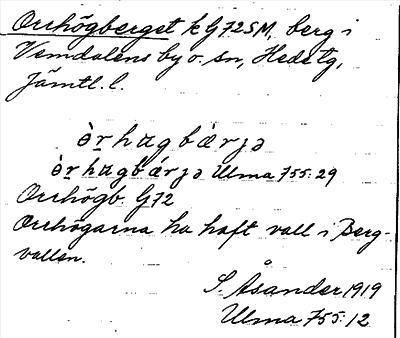 Orrhögberget k G72SM, berg i
Vemdalens by o. sn, Hede tg,
Jämtl. l.
ὰrhɑgbǽrjə
ὰrhɑgbǽrjə Ulma 755:29
Orrhögb. G72
Orrhögarna ha haft vall i Berg-
vallen.
S. Åsander 1919
Ulma 755:12